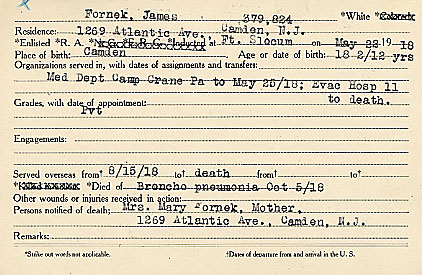 Fornek, James 379,824 *White *Colored
Residence: 1269 Atlantic Ave., Camden, N.J.
*Enlisted *R. A. *N. G. *E. R. C. *Inducted at Ft. Slocum on May 22 19 18
Place of birth: Camden Age or date of birth: 18 2/12 yrs
Organizations served in, with dates of assignments and transfers:
Med Dept Camp Crane Pa to May 25/18; Evac Hosp 11
to death.
Grades, with date of appointment:
Pvt
Engagements:
Served overseas from† 8/15/18 to† death from† to†
*Died of Broncho pneumonia Oct 5/18
Other wounds or injuries received in action:
Persons notified of death: Mrs. Mary Fornek, Mother,
1269 Atlantic Ave., Camden, N.J.
Remarks:
*Strike out words not applicable. †Dates of departure from and arrival in the U. S.